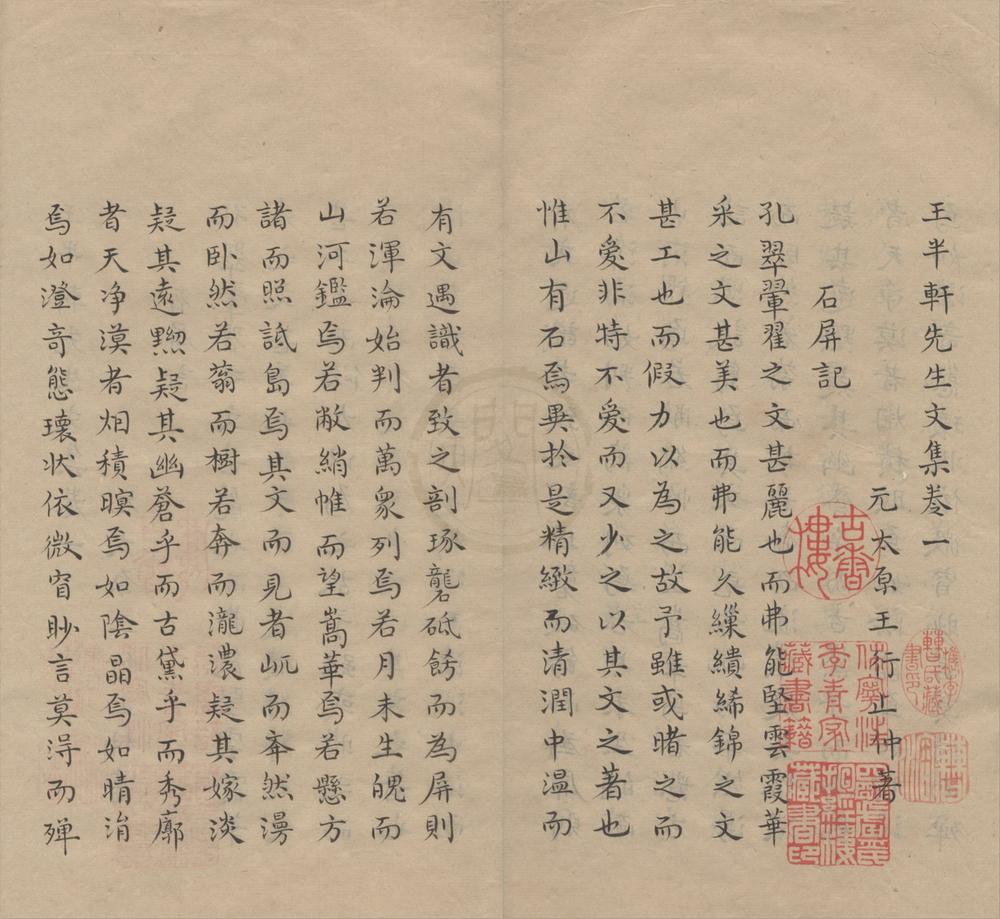 王半軒先生文集卷一
元太原王行止仲著
石屏記
孔翠翬翟之文甚麗也而弗能堅雲霞華
采之文甚美也而弗能久繅繢絺錦之文
甚工也而假力以為之故予雖或睹之而
不愛非特不愛而又少之以其文之著也
惟山有石焉異扵是精緻而清潤中温而
有文遇識者致之剖琢礱砥餙而為屏則
若渾淪始判而萬象列焉若月未生魄而
山河鑑焉若敝綃帷而望嵩華焉若懸方
諸而照詆島焉其文而見者屼而夲然漫
而卧然若蓊而樹若奔而瀧濃疑其嫁淡
疑其遠黝疑其幽蒼乎而古黛乎而秀廓
者天净漠者烟積暝焉如陰晶焉如晴涓
焉如澄竒態瓌状依微窅眇言莫淂而殫
古香樓
休寧汪季青家藏書籍